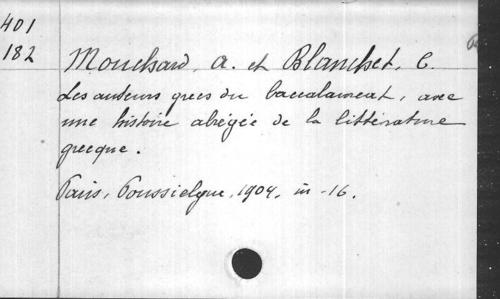 401
182
Mouchard, A. et Blanchet, C.
Les auteurs grecs du baccalaureat, avec
une histoire abrégée de la littérature
grecque.
Paris, Poussielgue, 1904, in-16.